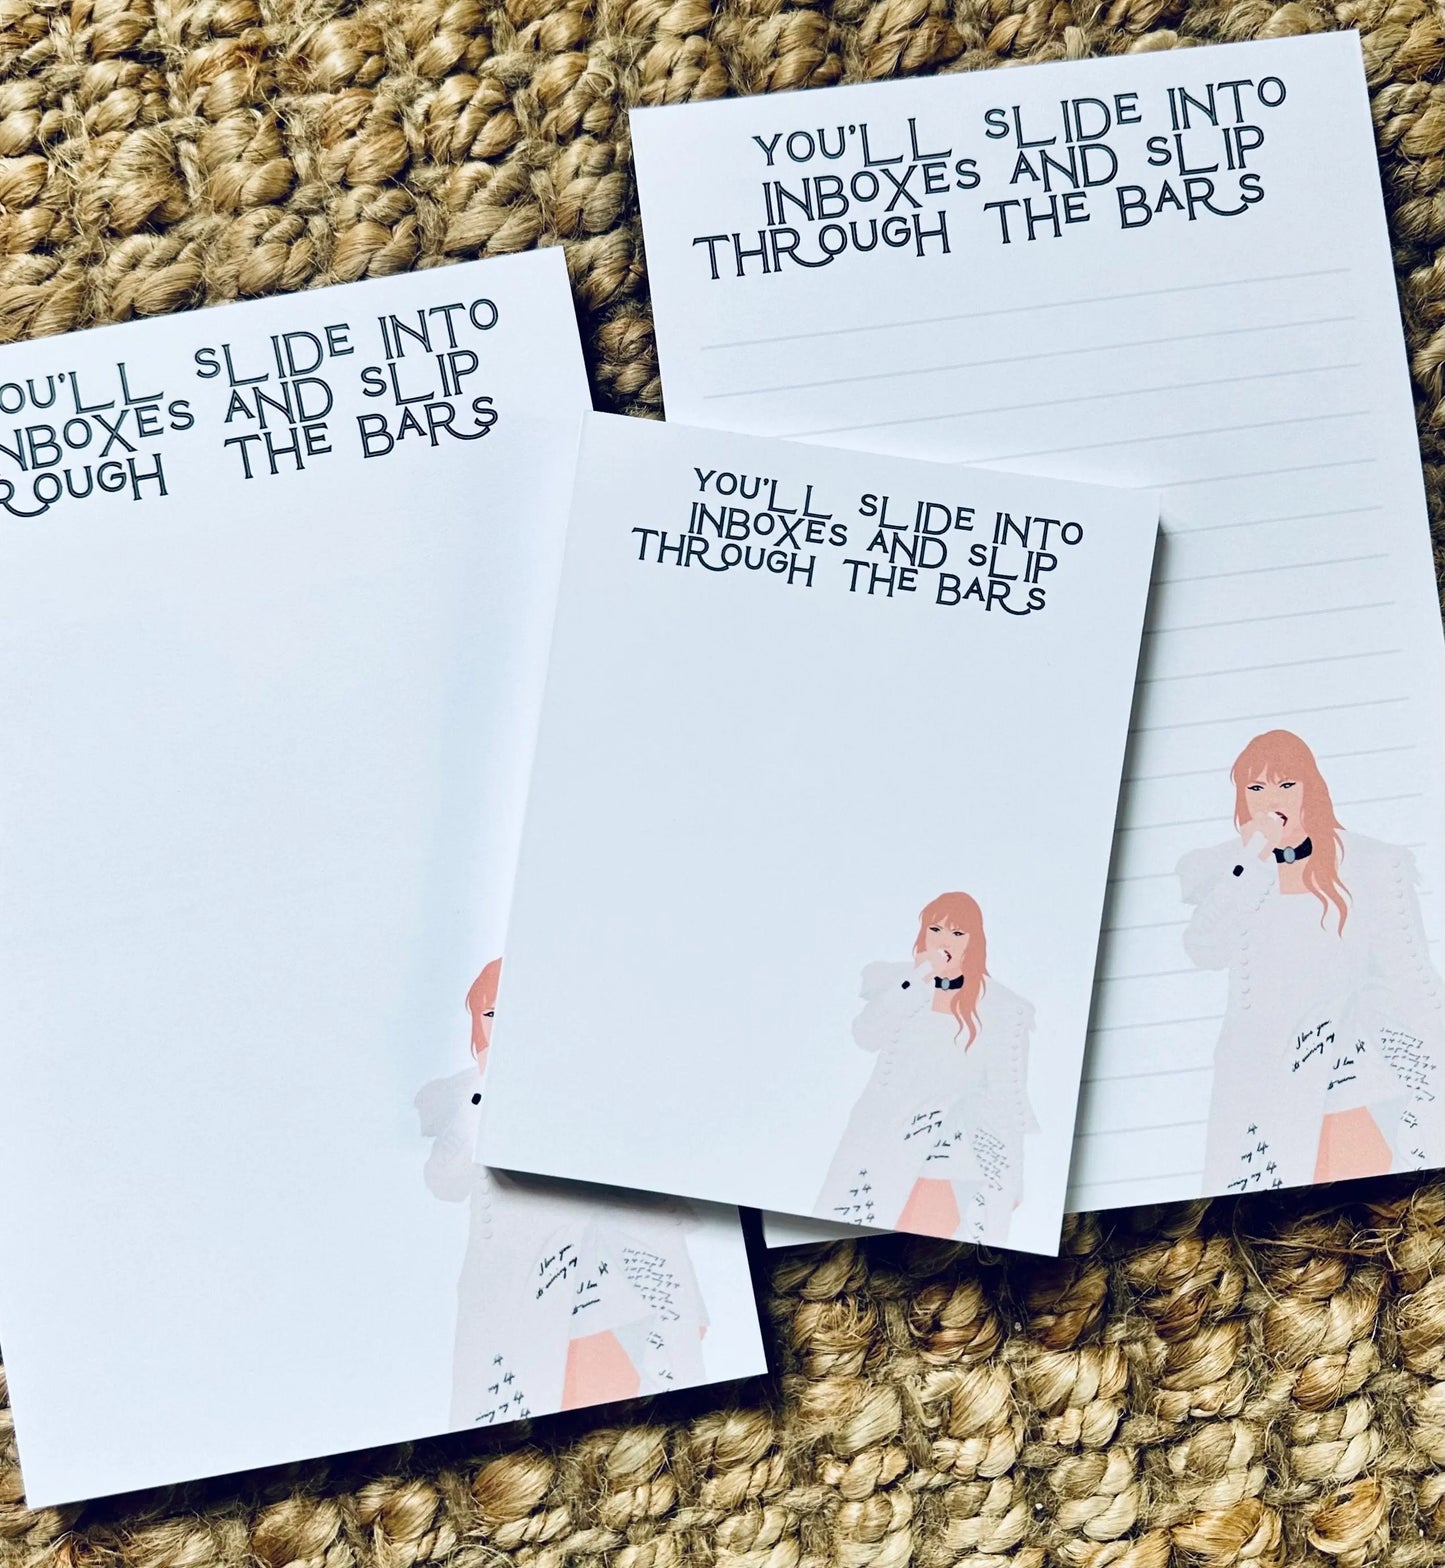 YOU'LL SLIDE INTO
INBOXES AND SLIP
THROUGH THE BARS
OU'LL SLIDE INTO
NBOXES AND SLIP
ROUGH THE BARS
YOU'LL SLIDE INTO
INBOXES AND SLIP
THROUGH THE BARS
I love you